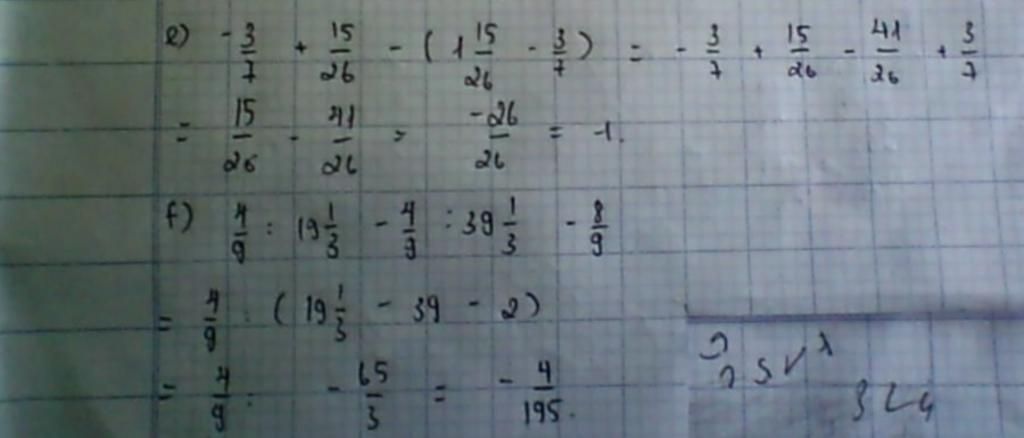 e) -3/7 + 15/26 - (1 15/26 - 3/7) = - 3/7 + 15/26 - 41/26 + 3/7
= 15/26 - 41/26 = -26/26 = -1.
f) 4/9 : 19 1/3 - 4/9 : 39 1/3 - 8/9
= 4/9 : (19 1/3 - 39 - 2)
= 4/9 : - 65/3 = - 4/195.